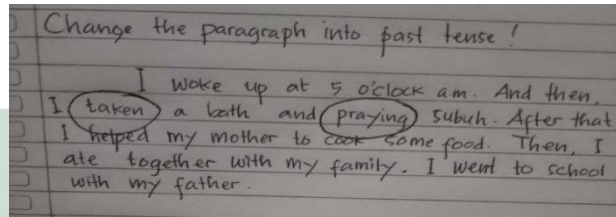 Change the paragraph into past tense!
I woke up at 5 o'clock am. And then,
I taken a bath and praying subuh. After that
I helped my mother to cook some food. Then, I
ate together with my family. I went to school
with my father.